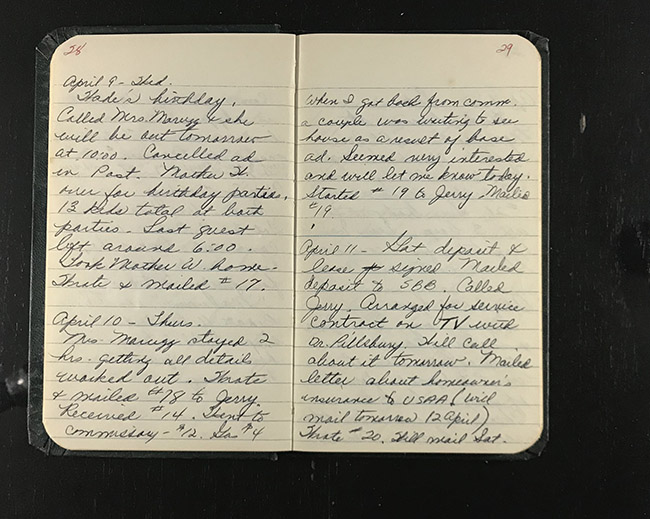 28
April 9 - Wed.
Wade's birthday.
Called Mrs. Marugg & she
will be out tomorrow
at 10:00. Cancelled ad
in Post. Mother W.
over for birthday parties.
13 kids total at both
parties - Last guest
left around 6:00.
Took Mother W. home.
Wrote & mailed #17.
April 10 - Thurs.
Mrs. Marugg stayed 2
hrs. getting all details
worked out. Wrote
& mailed #18 to Jerry.
Received #14. Went to
commissary - $12. Gas $4
29
When I got back from comm.
a couple was waiting to see
house as a result of base
ad. Seemed very interested
and will let me know today.
Started #19 to Jerry Mailed
#19
April 11 - Got deposit &
lease signed Mailed
deposit to SBB. Called
Jerry. Arranged for service
contract on TV with
Dr. Pillsbury. Will call
about it tomorrow. Mailed
letter about homeowner's
insurance to USAA (will
mail tomorrow 12 April)
Wrote #20. Will mail Sat.